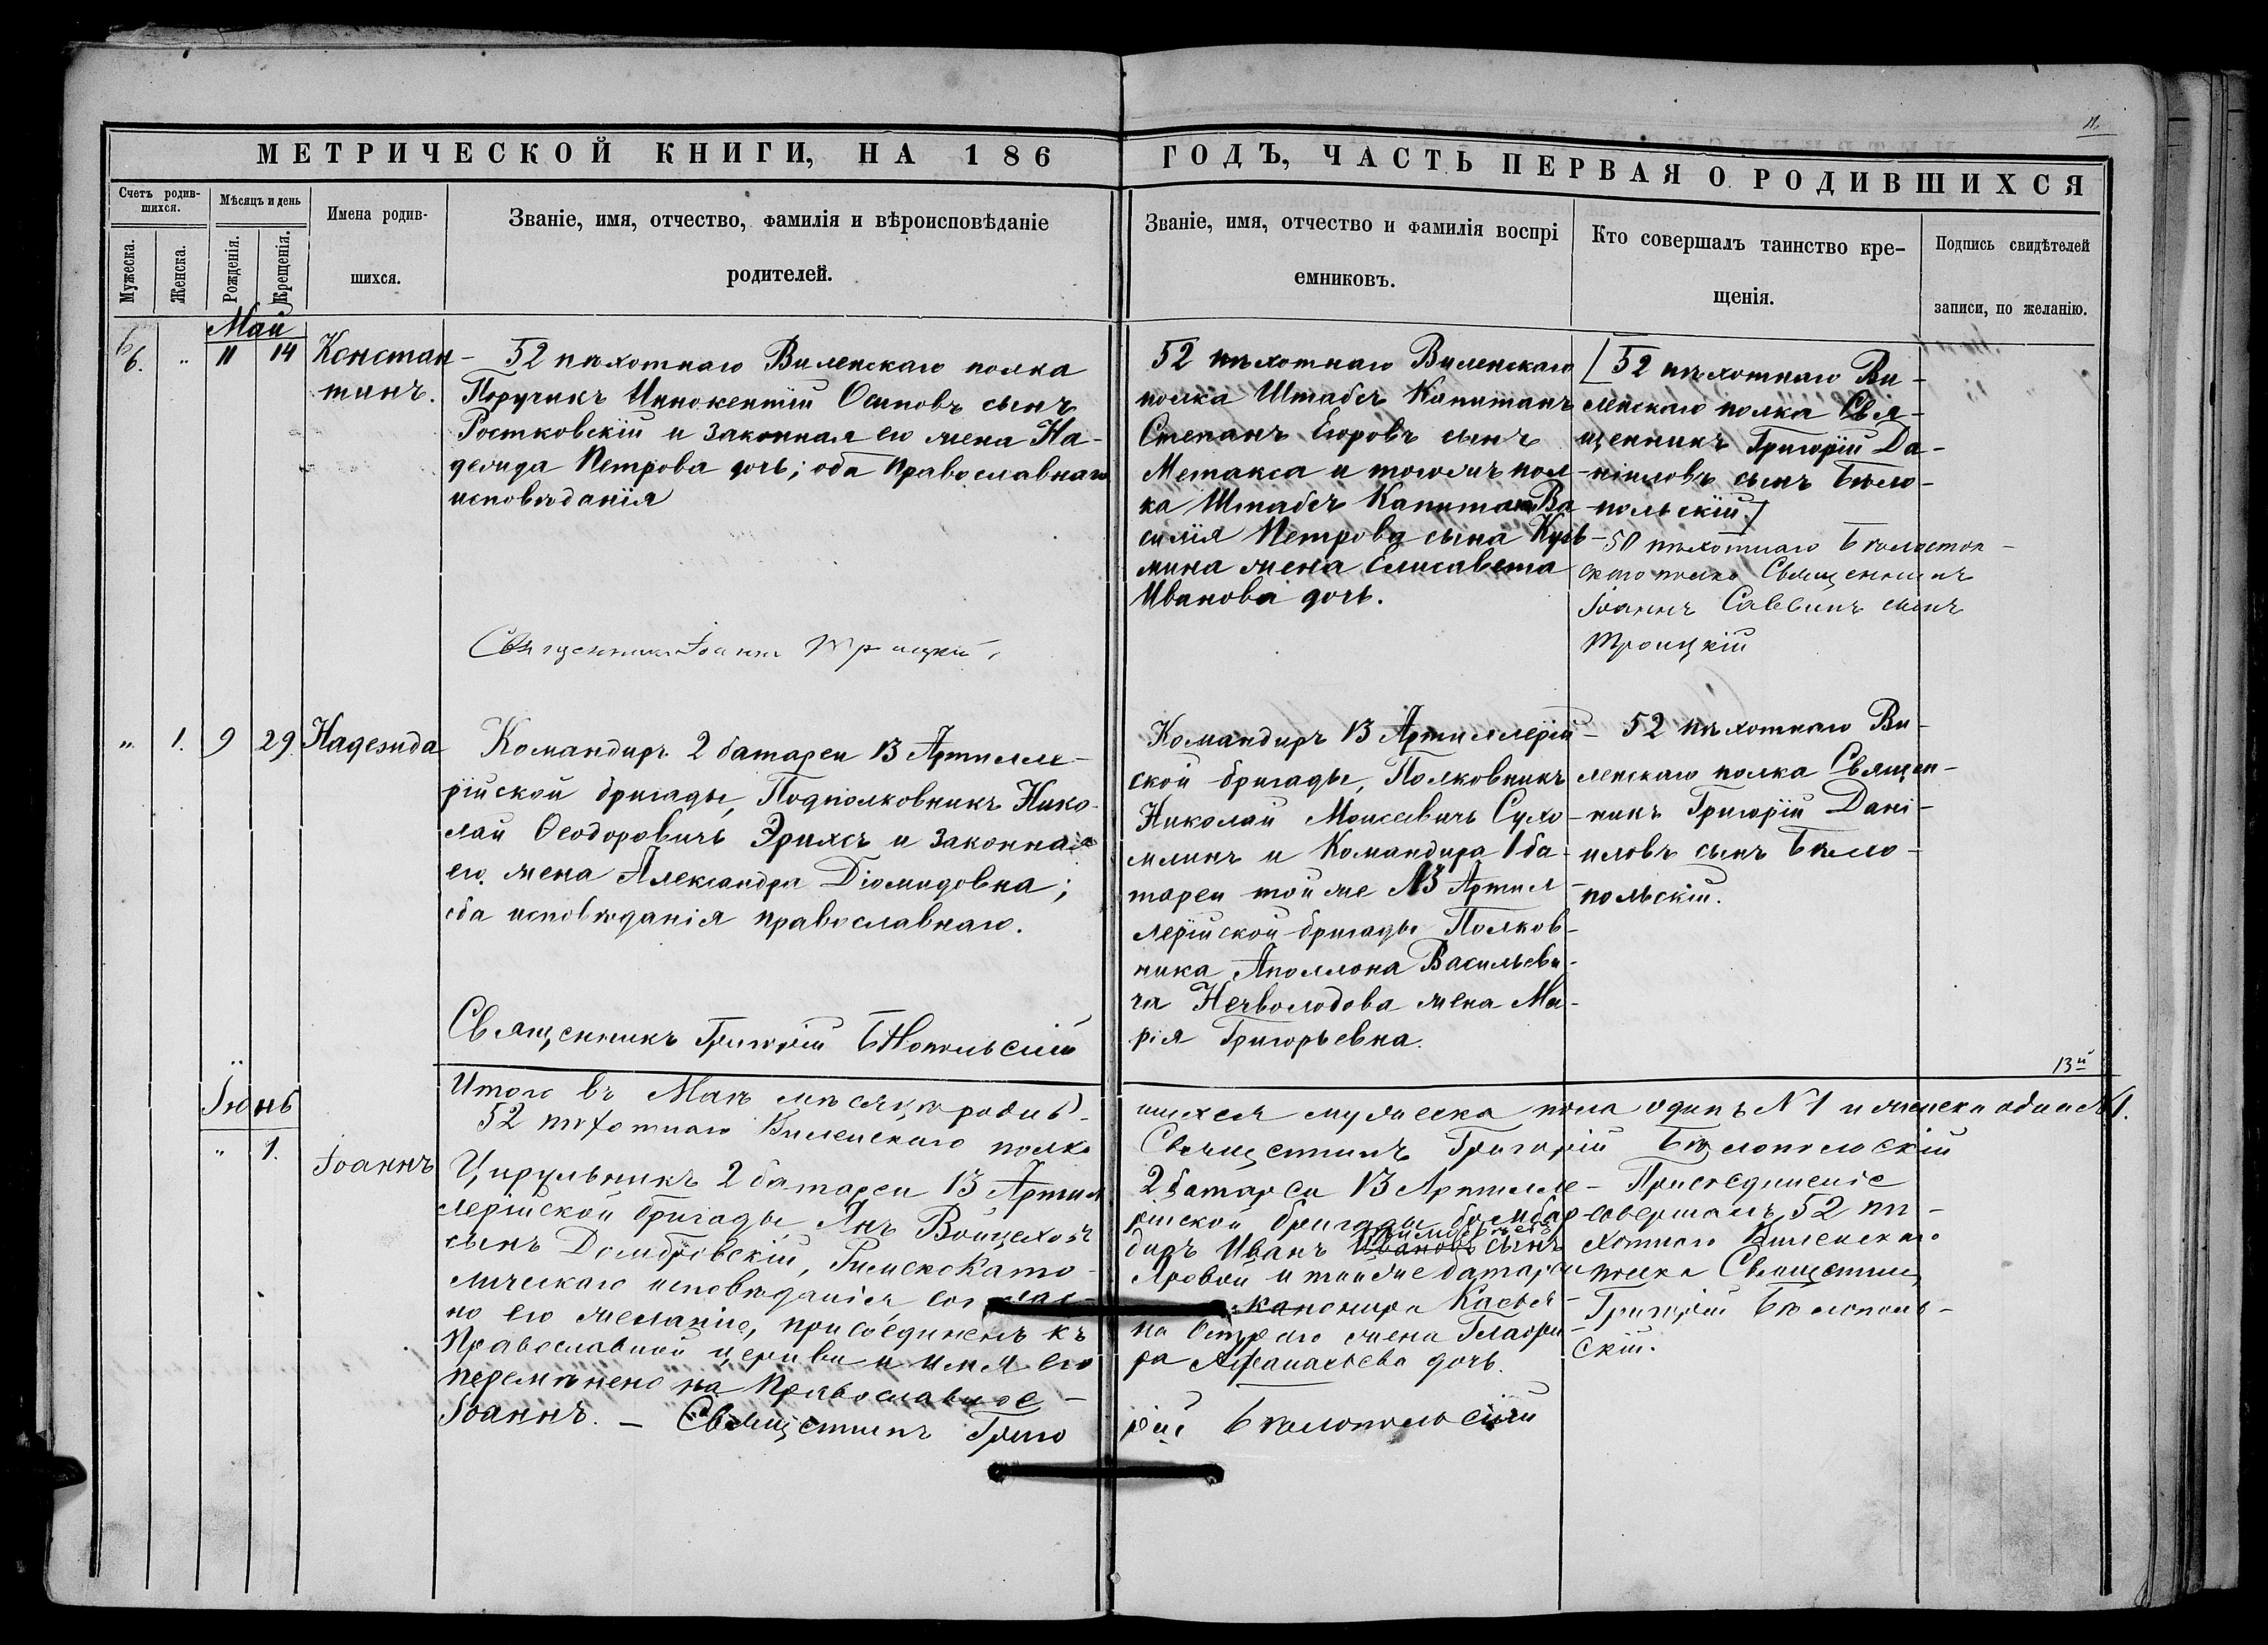 МЕТРИЧЕСКОЙ КНИГИ, НА 186 ГОДЪ, ЧАСТЬ ПЕРВАЯ О РОДИВШИХСЯ
Счетъ родив-
шихся.
Мужеска.
Женска.
Мѣсяцъ и день
Рожденія.
Крещенія.
Имена родив-
шихся.
Званіе, имя, отчество, фамилія и вѣроисповѣданіе
родителей.
Званіе, имя, отчество и фамилія воспрі
емниковъ.
Кто совершалъ таинство кре-
щенія.
Подпись свидѣтелей
записи, по желанію.
Май
6. " 11 14
Констан-
тинъ.
52 пѣхотнаго Виленскаго полка
Поручикъ Иннокентій Осиповъ сынъ
Ростковскій и законная его жена На-
дежда Петрова дочь; оба Православнаго
исповѣданія
Священникъ Іоаннъ Троицкій
52 пѣхотнаго Виленскаго
полка Штабсъ Капитанъ
Степанъ Егоровъ сынъ
Метакса и тогожъ пол-
ка Штабсъ Капитана Ва
силія Петрова сына Кузь-
мина жена Елисавета
Иванова дочь.
[52 пѣхотнаго Ви-
ленскаго полка Свя-
щенникъ Григорій Да-
ніиловъ сынъ Бѣло-
польскій]
50 пѣхотнаго Бѣлосток-
скаго полка Священникъ
Іоаннъ Саввинъ сынъ
Троицкій
" 1. 9 29. Надежда
Командиръ 2 батареи 13 Артилле-
рійской бригады, Подполковникъ Нико-
лай Ѳеодоровичъ Эрихсъ и законная
его жена Александра Діомидовна;
оба исповѣданія православнаго.
Священникъ Григорій Бѣлопольскій
Командиръ 13 Артиллерій-
ской бригады, Полковникъ
Николай Моисеевичъ Сухо
млинъ и Командира 1 ба-
тареи той же 13 Артил-
лерійской бригады Полков-
ника Аполлона Васильеви-
ча Нечволодова жена Ма-
рія Григорьевна.
52 пѣхотнаго Ви-
ленскаго полка Священ-
никъ Григорій Дані-
иловъ сынъ Бѣло-
польскій.
13й
Итого въ Маѣ мѣсяцѣ родив-
шихся мужеска пола одинъ №1 и женска одна №1.
52 пѣхотнаго Виленскаго полка
Священникъ Григорій Бѣлопольскій
Іюнь
" 1.
Іоаннъ
Цирульникъ 2 батареи 13 Артил
лерійской бригады, Янъ Войцеховъ
сынъ Домбровскій, Римско Като-
лическаго исповѣданія, соглас-
но его желанію, присоединенъ къ
Православной церкви и имя его
перемѣнено на Православное -
Іоаннъ. — Священникъ Григо
рій Бѣлопольскій
2 батареи 13 Артилле-
рійской бригады бомбар-
диръ Иванъ Ивановъ сынъ
Яровой и тойже батареи
канонира Касья-
на Остраго жена Глафи-
ра Аѳанасьева дочь.
Присоединеніе
совершалъ 52 пѣ-
хотнаго Виленскаго
полка Священникъ
Григорій Бѣлополь-
скій.